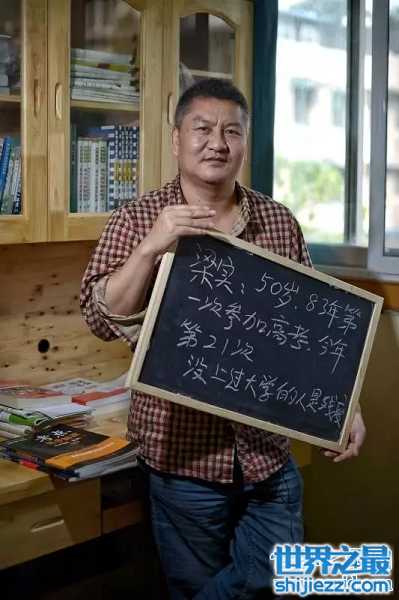 梁实：50岁、83年第
一次参加高考，今年
第21次
没上过大学的人是残废
世界之最
shijiezz.com